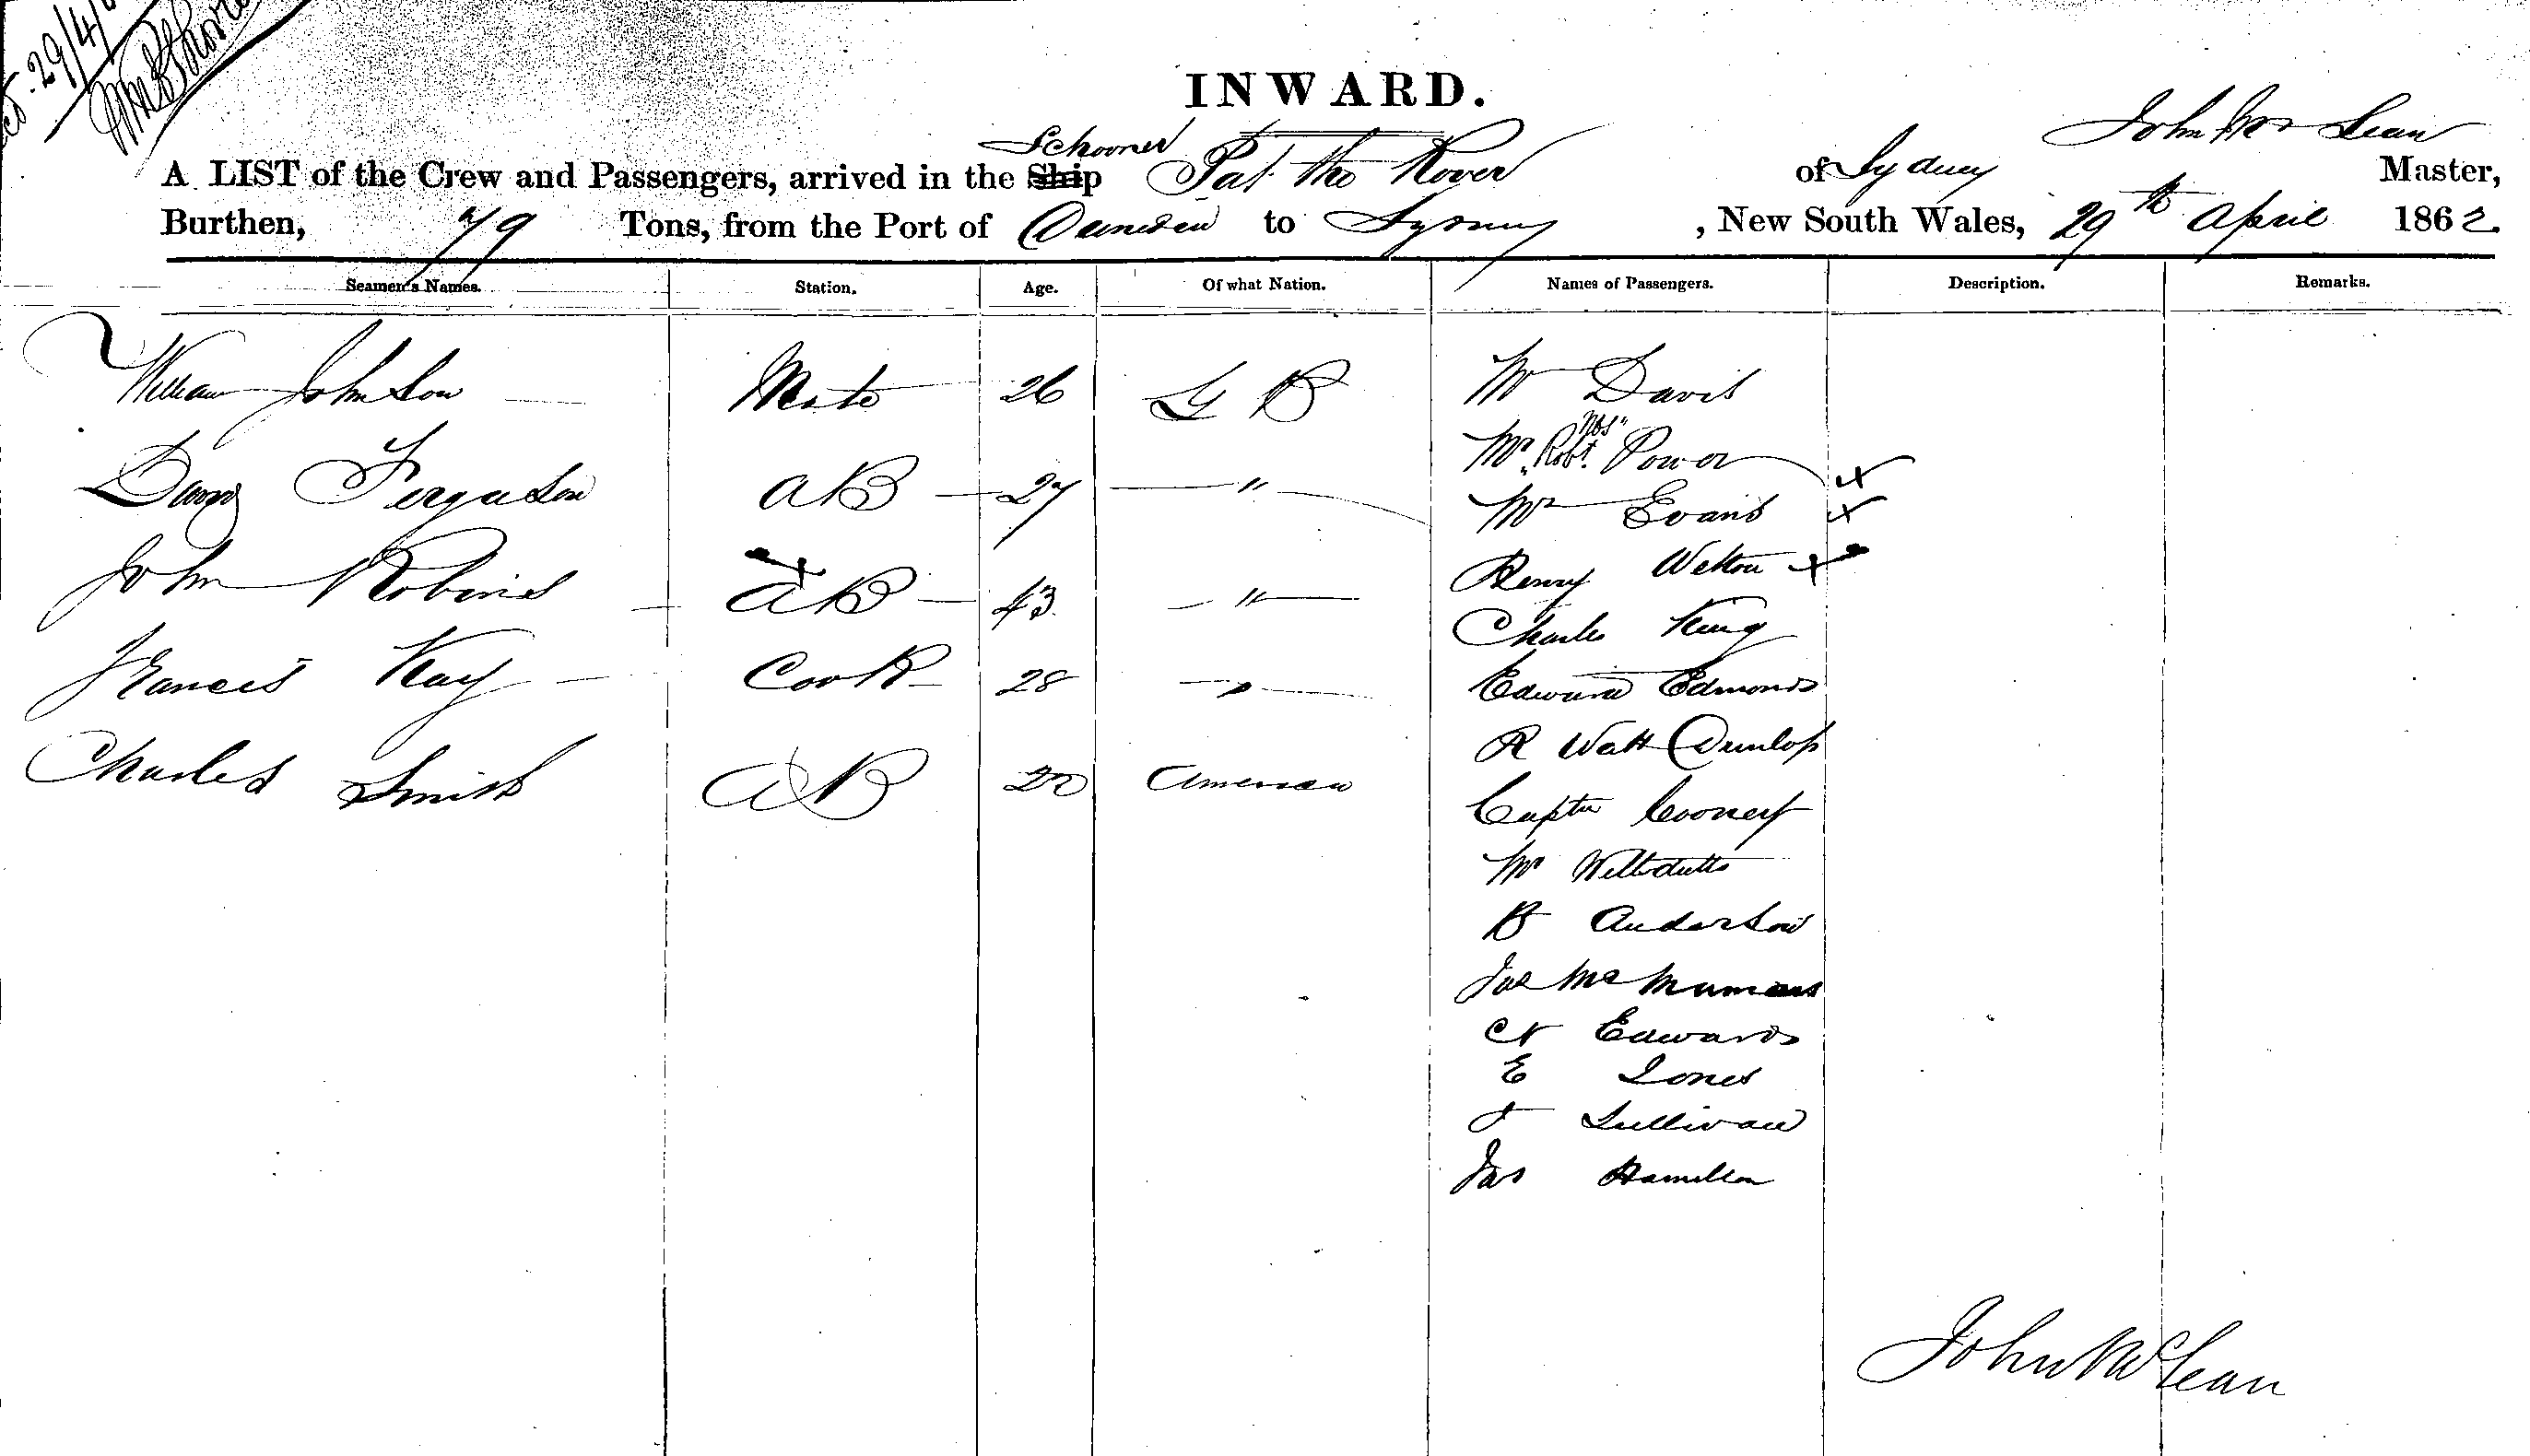 29/4/6
INWARD.
John Mc Lean
Schooner
A LIST of the Crew and Passengers, arrived in the Ship Pat the Rover of Sydney Master,
Burthen, 79 Tons, from the Port of Dunedin to Sydney, New South Wales, 29th April 1862.
Seamen's Names. Station. Age. Of what Nation. Names of Passengers. Description. Remarks.
William Johnson Mate 26 G B Mr Davis
Mr Robt. Power
Ferguson AB 27 " Mr Evans
John Robins AB 43 " Henry Welton
Charles King
Francis Kay Cook 28 " Edward Edmonds
R Watt Dunlop
Charles Smith AB 22 American Captn
Mr
B Anderson
Jas Mc
Edwards
E Jones
J Sullivan
Jas Hamilton
John McLean